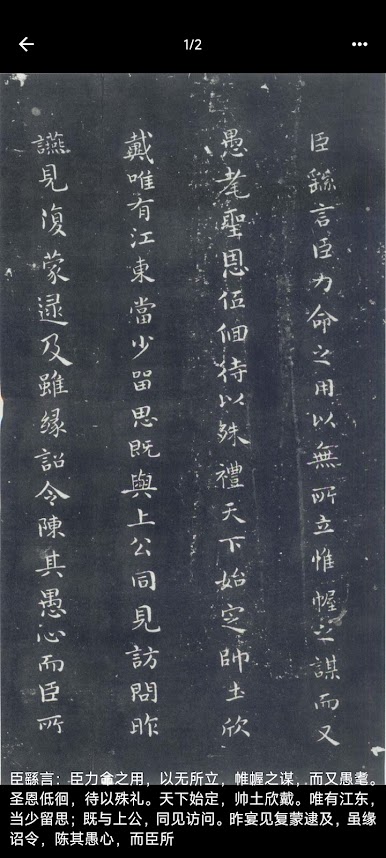 1/2
臣繇言臣力命之用以無所立惟幄之謀而又
愚耄聖恩伍佪待以殊禮天下始定帥土欣
戴唯有江東當少留思既與上公同見訪問昨
讌見復蒙逯及雖緣詔令陳其愚心而臣所
臣繇言：臣力命之用，以无所立，帷幄之谋，而又愚耄。
圣恩低徊，待以殊礼。天下始定，帅土欣戴。唯有江东，
当少留思；既与上公，同见访问。昨宴见复蒙逮及，虽缘
诏令，陈其愚心，而臣所